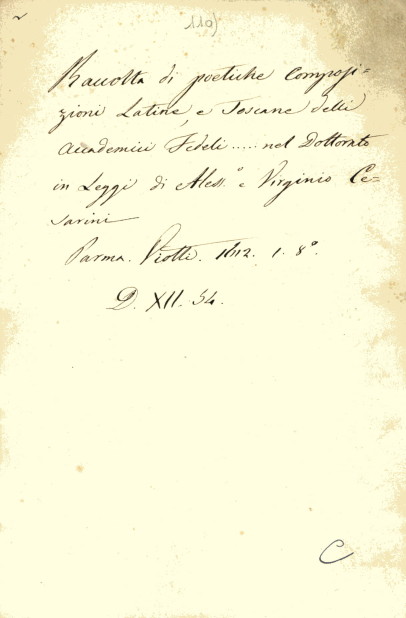 110)
Raccolta di poetiche Composi=
zioni Latine, e Toscane delli
Accademici Fedeli ..... nel Dottorato
in Leggi di Aless.° e Virginio Ce=
sarini
Parma. Viotti. 1612. 1. 8°.
D. XII. 54.
C